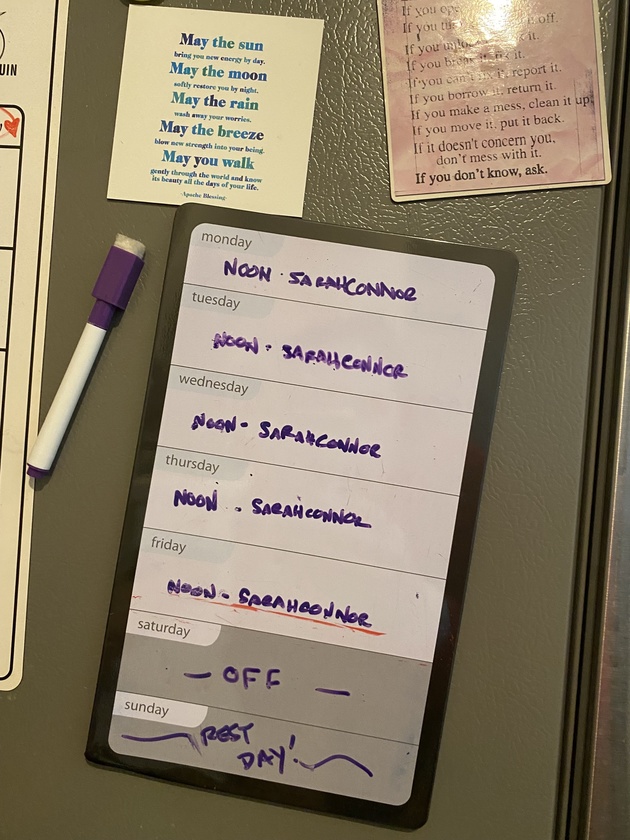 UIN
May the sun
bring you new energy by day.
May the moon
softly restore you by night.
May the rain
wash away your worries.
May the breeze
blow new strength into your being.
May you walk
gently through the world and know
its beauty all the days of your life.
-Apache Blessing-
If you ope
If you is off.
If you it.
If you break it.
If you can't fix it, report it.
If you borrow it, return it.
If you make a mess, clean it up.
If you move it, put it back.
If it doesn't concern you,
don't mess with it.
If you don't know, ask.
monday
NOON · SARAHCONNOR
tuesday
NOON - SARAHCONNOR
wednesday
NOON - SARAHCONNOR
thursday
NOON - SARAHCONNOR
friday
NOON - SARAHCONNOR
saturday
— OFF —
sunday
REST
DAY!